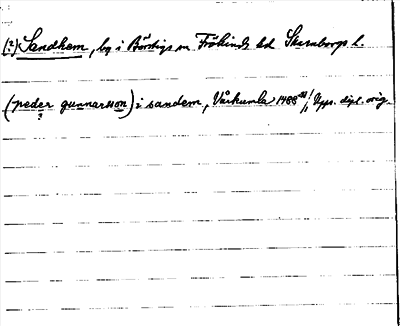 (?) Sandhem, by i Börstigs sn Frökinds hd Skaraborgs l.
(peder gunnarsson) i sandem, Vårkumla 1488 Upps. dipl. orig.